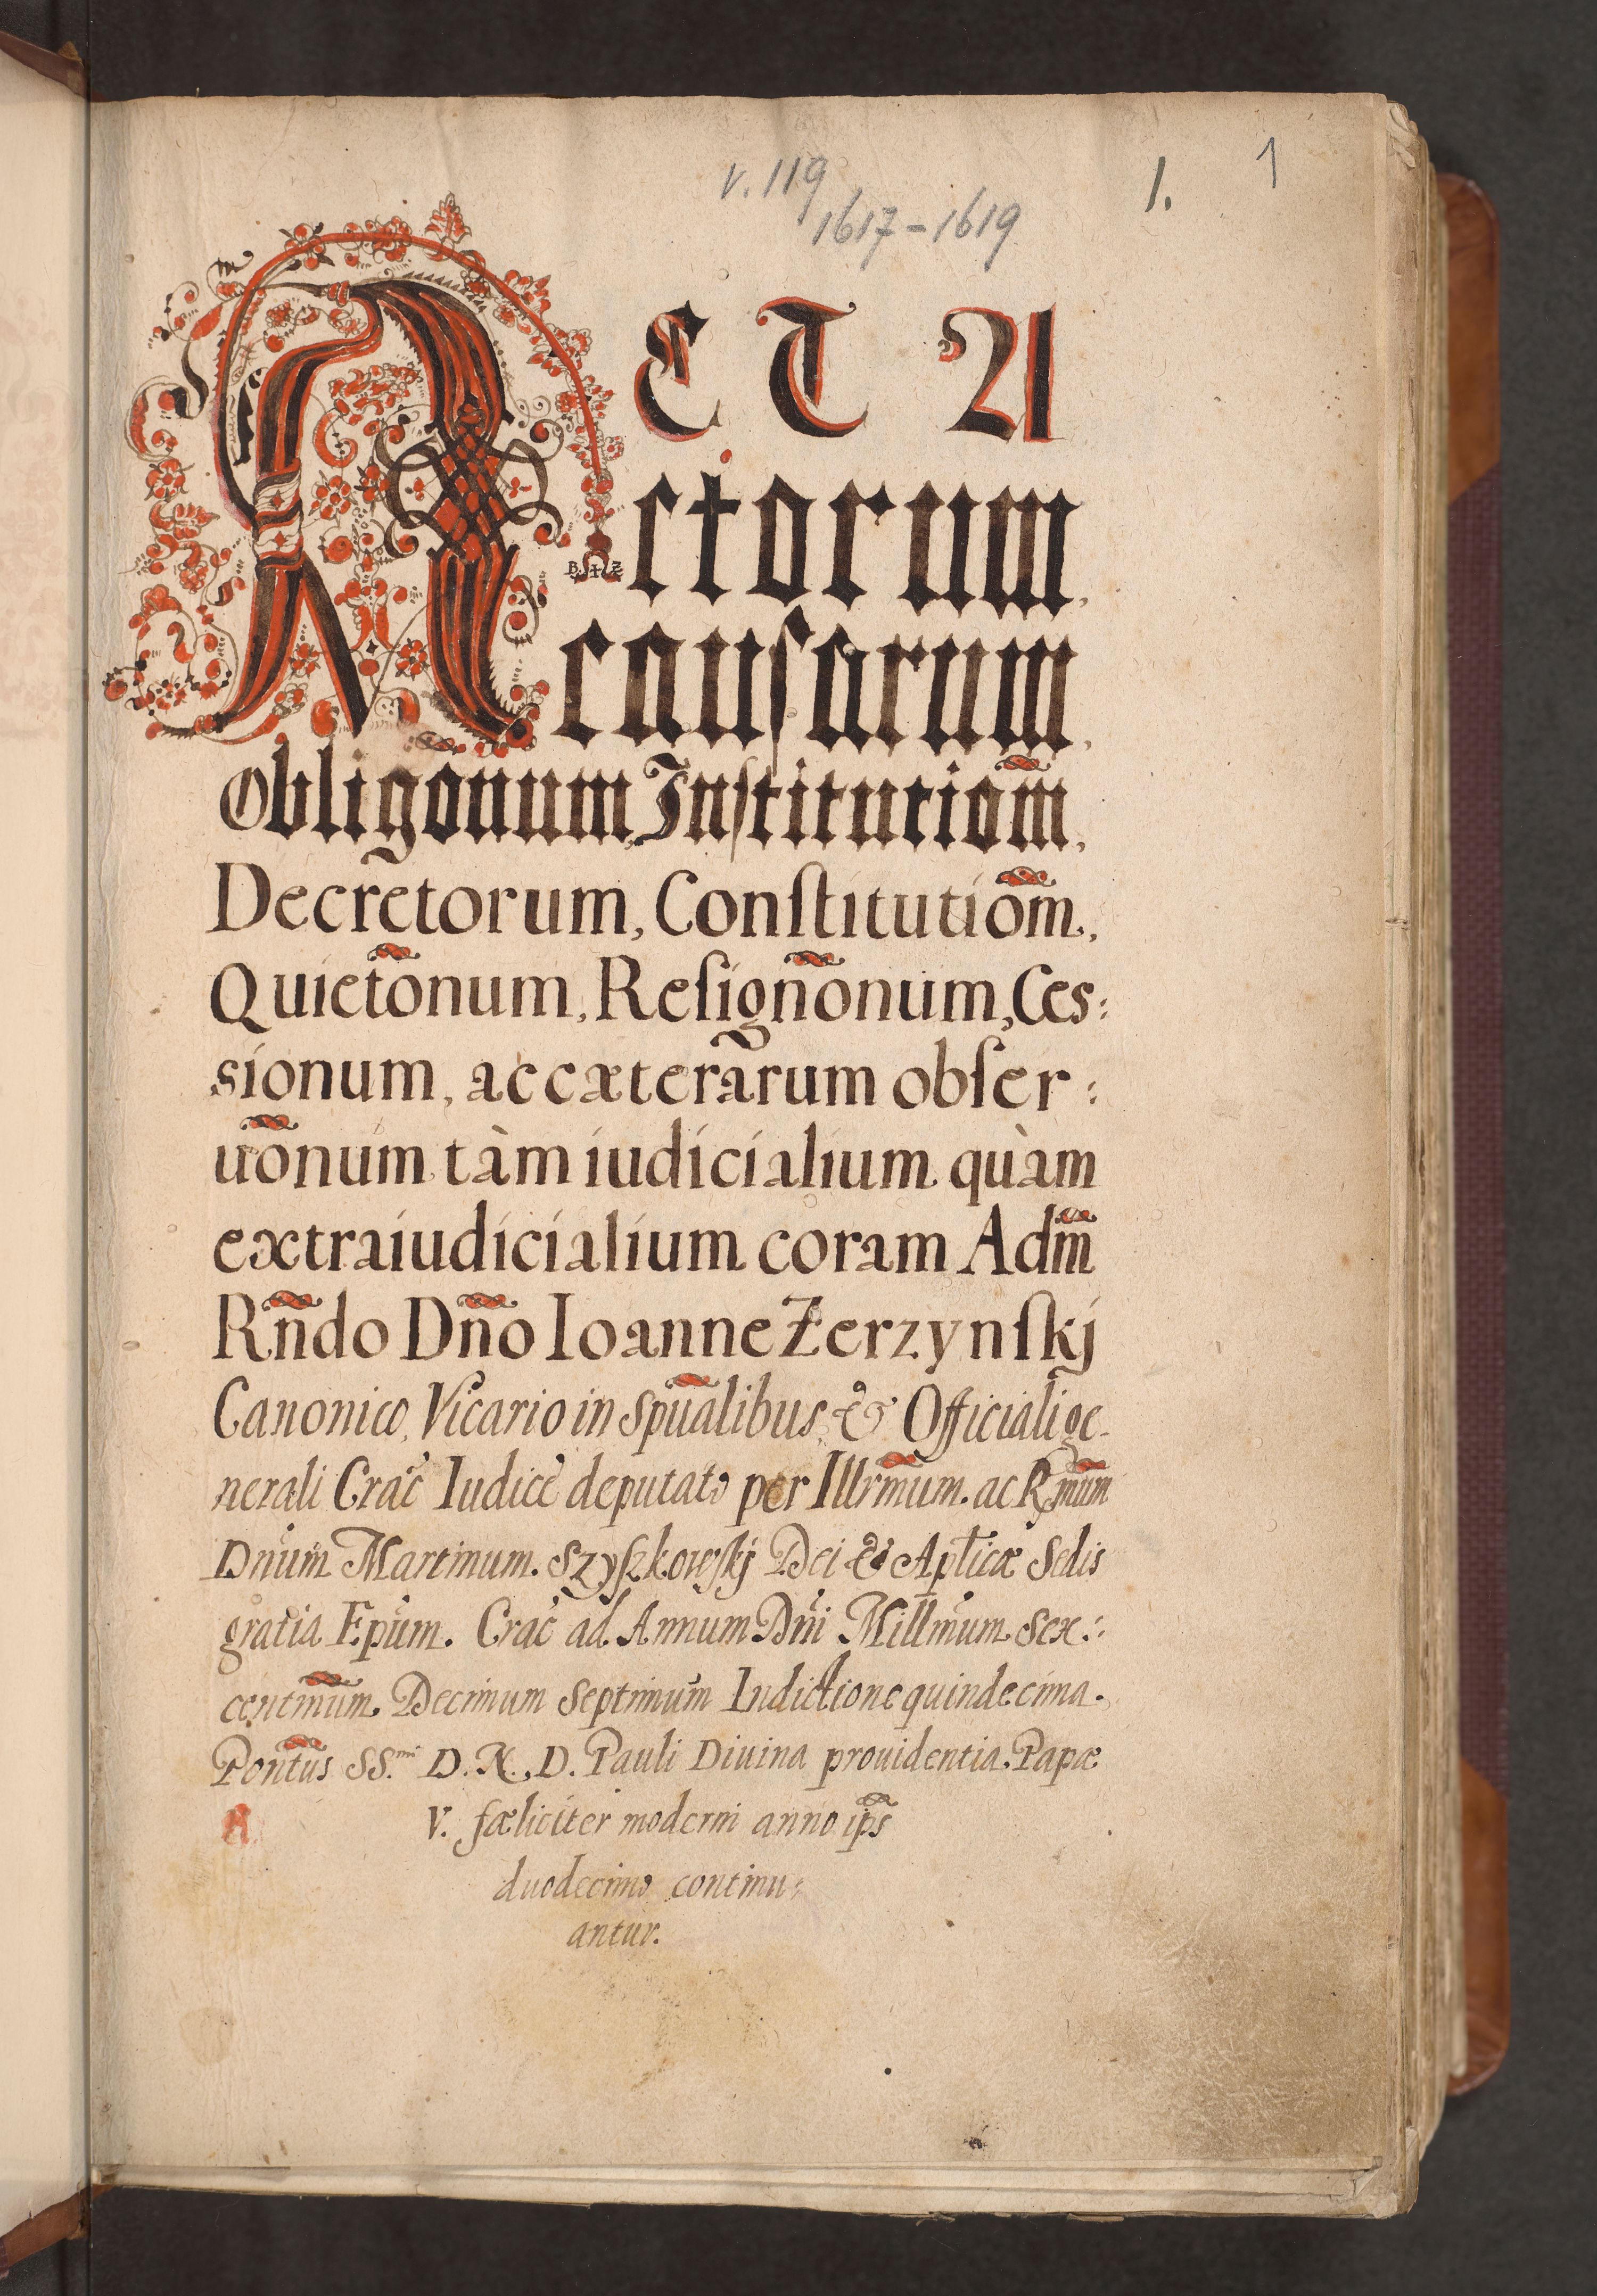 v. 119
1617-1619
1. 1
ACTA
actorum,
causarum,
Obligõnum, Institutiom̃,
Decretorum, Conſtitutiom̃,
Quietõnum, Reſignõnum, Ces:
sionum, ac cæterarum obſer:
uõnum tàm iudicialium quàm
extraiudicialium coram Adm̃
Rñdo Dño Ioanne Zerzynſkj
Canonico, Vicario in Spũalibus & Officiali ge-
nerali Crac̃ Iudice deputato per Illrm̃um. ac Rm̃um
Dñum Martinum. Szyſzkowſkj Dei & Apl̃icæ Sedis
gratia Ep̃um. Crac̃ ad Annum Dñi Millm̃um Sex:
centm̃um. Decimum Septimum Indictione quindecima.
Pont̃us SS.mi D. N. D. Pauli Diuina prouidentia Papæ
V. fæliciter moderni anno ip̃s
duodecimo continu:
antur.